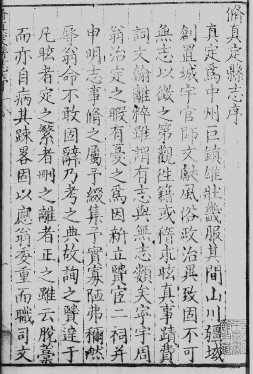 修真定縣志序
真定為中州巨鎮雄壯畿服其間山川疆域
創置城宇官師文獻風俗政治異致因不可
無志以徵之第觀往籍或僭末眩真事蹟費
詞文謝離粹雖謂有志與無志類矣寧宇周
翁治定之暇有憂之焉因新立賢宦二祠并
申明志事脩之属予綴集予實寡陋弗稱然
辱翁命不敢因辭乃考之典故詢之賢達于
凡眩者定之繁者刪之離者正之雖云脫藁
而亦自病其踈畧因以應翁委重而職司文